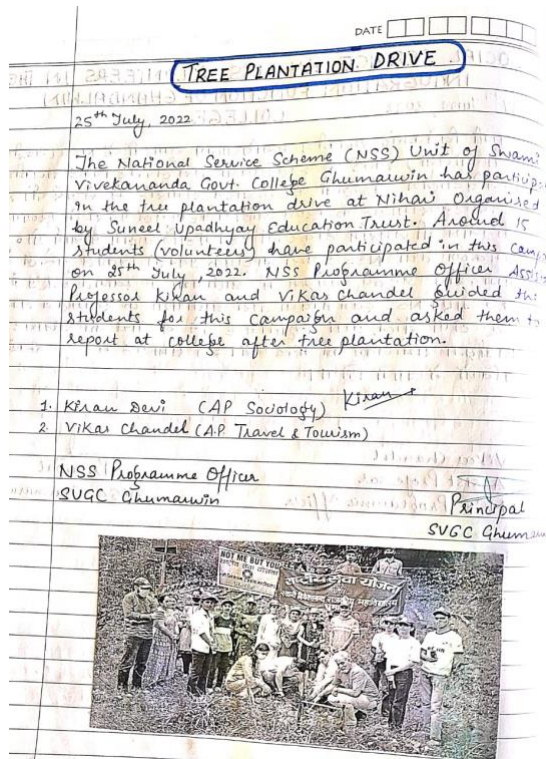 DATE
TREE PLANTATION DRIVE
25th July, 2022
The National Service Scheme (NSS) Unit of Swami
Vivekananda Govt. College Ghumarwin has particip
in the tree plantation drive at Nihari Organised
by Suneel Upadhyay Education Trust. Around 15
students (volunteers) have participated in this camp
on 25th July, 2022. NSS Programme Officer Assis
Professor Kiran and Vikas Chandel guided the
students for this campaign and asked them to
report at college after tree plantation.
1. Kiran Devi (AP Sociology) Kiran
2. Vikas Chandel (A.P Travel & Tourism)
NSS Programme Officer
SVGC Ghumarwin
Principal
SVGC Ghumarw
NOT ME BUT YOU
राष्ट्रीय सेवा योजना